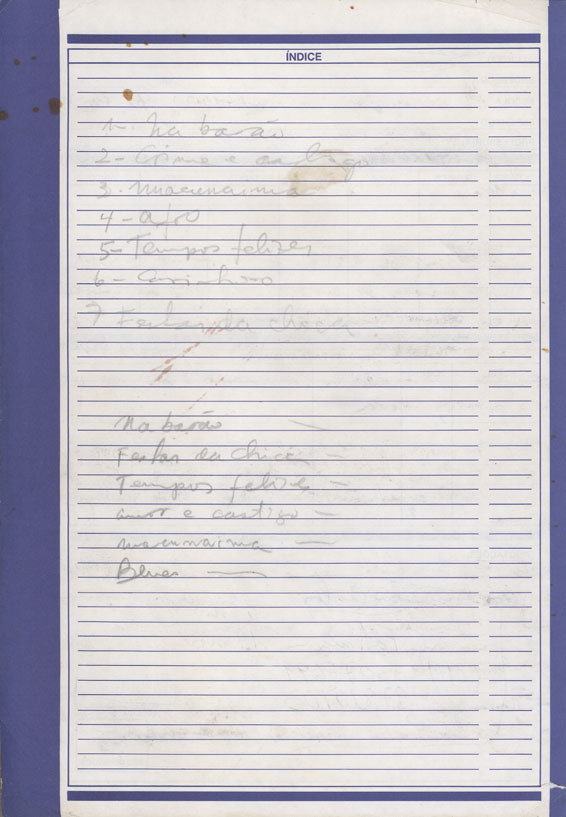 ÍNDICE
1- Na barão
2- Crime e castigo
3- Macunaíma
4- afro
5- Tempos felizes
6- Carinhoso
7 Festas da chica
Na barão
Festas da Chica
Tempos felizes
amor e castigo
macunaíma
Blues